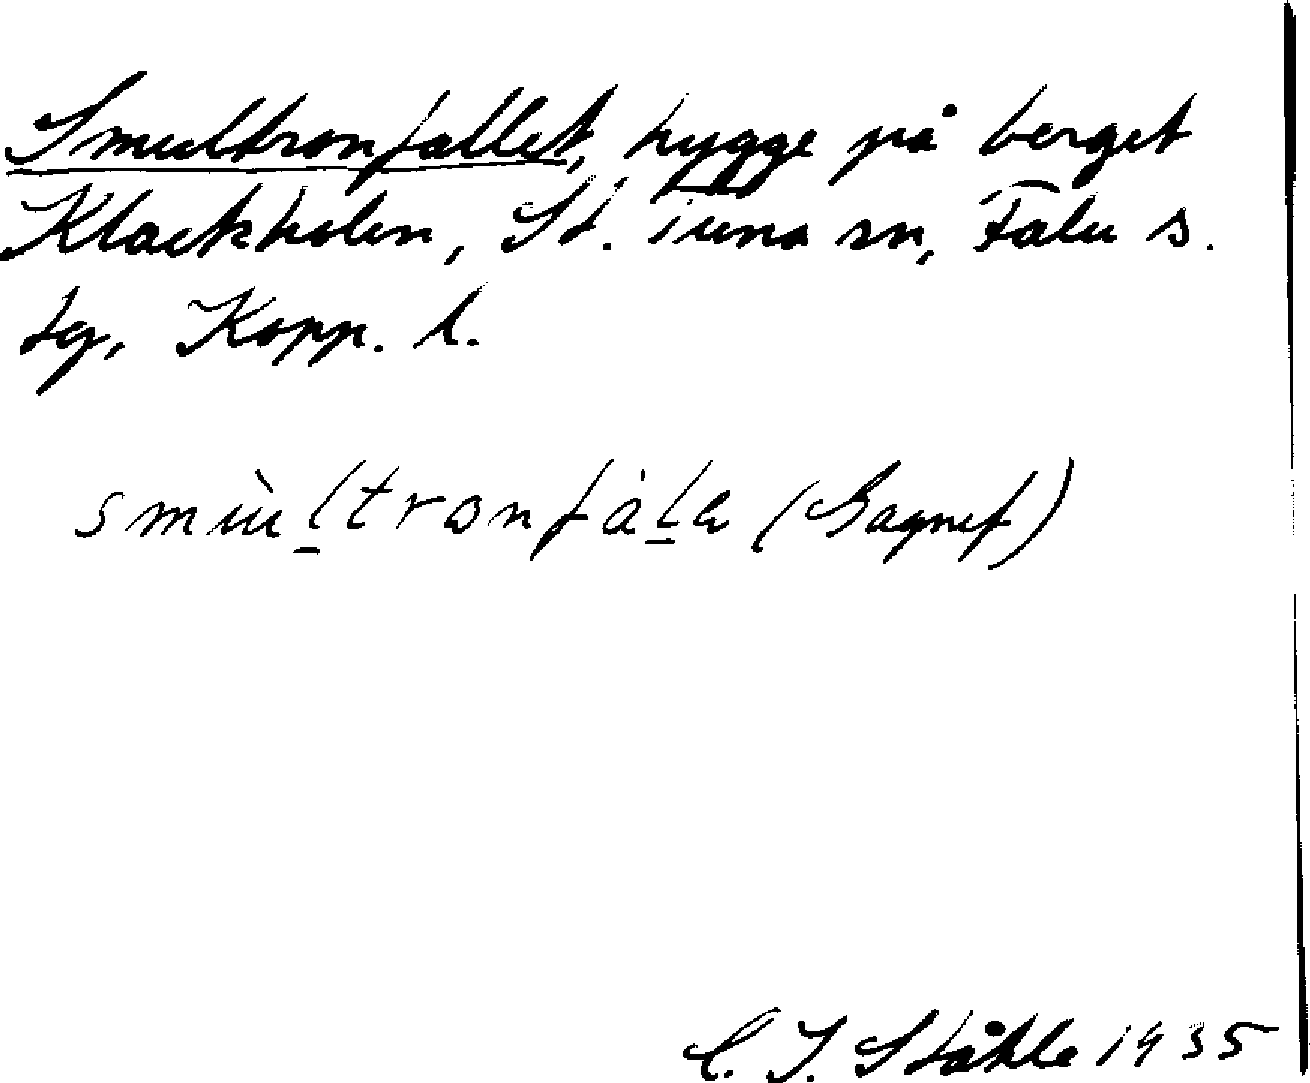 Smultronfallet, hygge på berget
Klackholen, St. Tuna sn, Falu s.
tg, Kopp. l.
smùltronfàlɐ (Gagnef)
C. I. Ståhle 1935